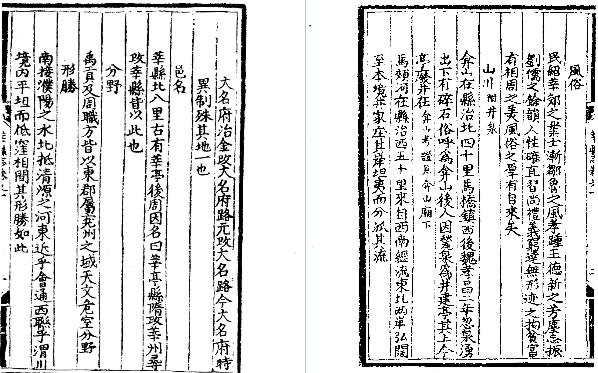 大名府治金改大名府路元改大名路今大名府特
異制殊其地一也
邑名
莘縣北八里古有莘亭後周因名曰莘亭縣隋改莘州尋
改莘縣皆以此也
分野
禹貢及周職方皆以東郡屬兗州之域天文危室分野
形勝
南接濮陽之水北抵清源之河東近乎會通西聯乎渭川
境內平坦而低窪相間其形勝如此
風俗
民紹莘郊之業士漸鄒魯之風孝踵王德新之芳廉志振
劉儒之餘韻人性確直習尚禮義窮達無形迹之拘貧富
有相周之美風俗之厚有自來矣
山川 附井泉
弇山在縣治北四十里馬橋鎮西後魏孝昌二年忽泉湧
出下有碎石俗呼為弇山後人因鑿泉為井建亭其上今
亭廢井在 弇山考證見弇山廟下
馬頰河在縣治西五十里來自西南經流東北兩岸弘闊
至本境 家庄其岸坦夷而分 其流